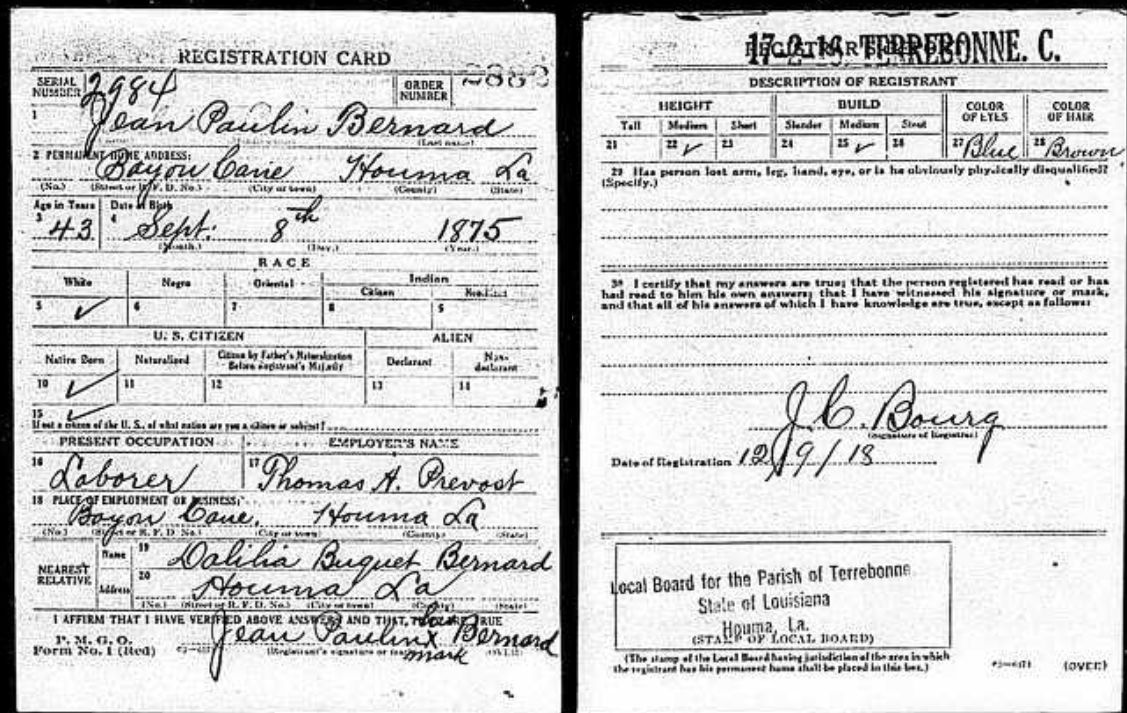 REGISTRATION CARD
SERIAL NUMBER 2984
ORDER NUMBER
1 Jean Paulin Bernard
(Last name)
2 PERMANENT HOME ADDRESS:
Bayou Cane Houma La
(No.) (Street or R. F. D. No.) (City or town) (County) (State)
Age in Years Date of Birth
3 43 4 Sept. 8th 1875
(Month.) (Day.) (Year.)
RACE
White Negro Oriental Indian
Citizen
5 ✓ 6 7 8 9
U. S. CITIZEN ALIEN
Native Born Naturalized Citizen by Father's Naturalization Before Registrant's Majority Declarant Non-declarant
10 ✓ 11 12 13 14
15 ✓
If not a citizen of the U. S., of what nation are you a citizen or subject?
PRESENT OCCUPATION EMPLOYER'S NAME
16 Laborer 17 Thomas A. Prevost
18 PLACE OF EMPLOYMENT OR BUSINESS:
Bayou Cane, Houma La
(No.) (Street or R. F. D. No.) (City or town) (County) (State)
NEAREST RELATIVE Name 19 Dalilia Buquet Bernard
Address 20 Houma La
(No.) (Street or R. F. D. No.) (City or town) (County) (State)
I AFFIRM THAT I HAVE VERIFIED ABOVE ANSWERS AND THAT THEY ARE TRUE
P. M. G. O.
Form No. 1 (Red)
Jean Paulin X his mark Bernard
(Registrant's signature or mark) (OVER)
17-2-16 TERREBONNE. C.
REGISTRAR'S REPORT
DESCRIPTION OF REGISTRANT
HEIGHT BUILD COLOR OF EYES COLOR OF HAIR
Tall Medium Short Slender Medium Stout
21 22 ✓ 23 24 25 ✓ 26 27 Blue 28 Brown
29 Has person lost arm, leg, hand, eye, or is he obviously physically disqualified?
(Specify.)
30 I certify that my answers are true; that the person registered has read or has
had read to him his own answers; that I have witnessed his signature or mark,
and that all of his answers of which I have knowledge are true, except as follows:
J. C. Bourg
(Signature of Registrar)
Date of Registration 12/9/18
Local Board for the Parish of Terrebonne
State of Louisiana
Houma, La.
(STAMP OF LOCAL BOARD)
(The stamp of the Local Board having jurisdiction of the area in which
the registrant has his permanent home shall be placed in this box.)
(OVER)